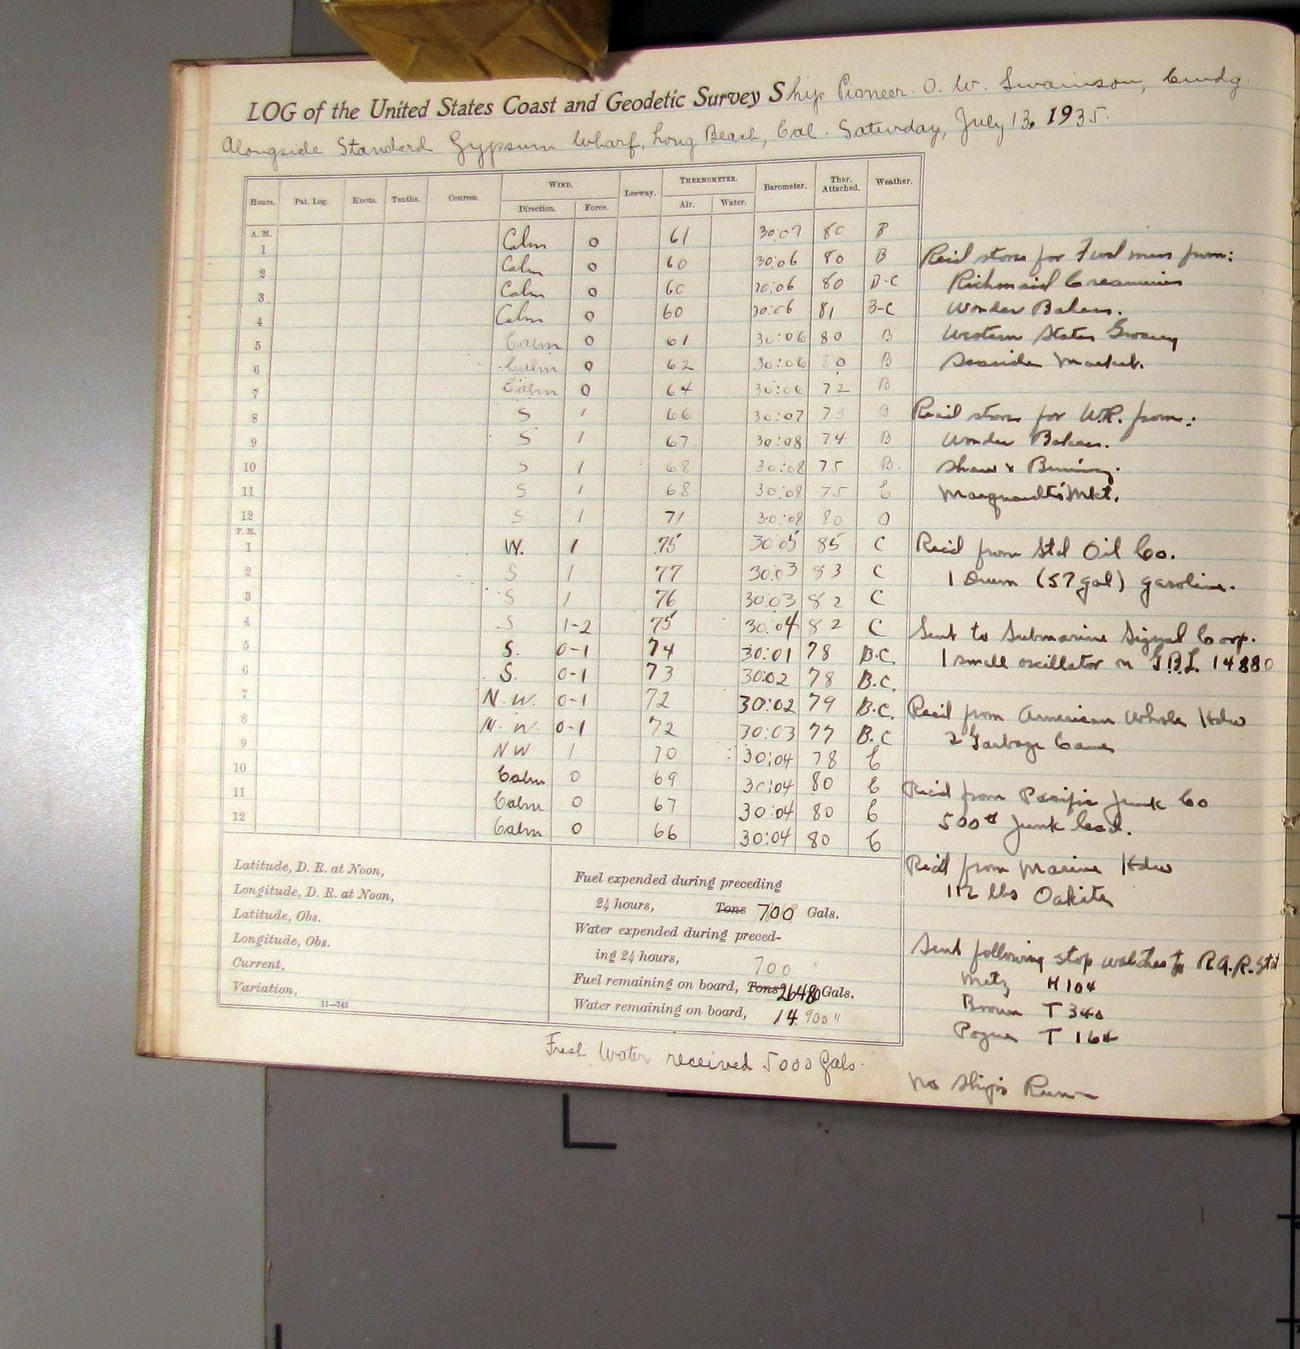 LOG of the United States Coast and Geodetic Survey Ship Pioneer. O. W. Swainson, Comdg.
Alongside Standard Gypsum Wharf, Long Beach, Cal. Saturday, July 13, 1935.
Hours. Pat. Log. Knots. Tenths. Courses. WIND. Leeway. THERMOMETER. Barometer. Ther. Attached. Weather.
Direction. Force. Air. Water.
A. M.
1 Calm 0 61 30:07 80 B
2 Calm 0 60 30:06 80 B
3 Calm 0 60 30:06 80 B-C
4 Calm 0 60 30:06 81 B-C
5 Calm 0 61 30:06 80 B
6 Calm 0 62 30:06 80 B
7 Calm 0 64 30:06 72 B
8 S 1 66 30:07 73 B
9 S 1 67 30:08 74 B
10 S 1 68 30:08 75 B.
11 S 1 68 30:08 75 C
12 S 1 71 30:08 80 O
P. M.
1 W. 1 75 30:05 85 C
2 S 1 77 30:03 83 C
3 S 1 76 30:03 82 C
4 S 1-2 75 30:04 82 C
5 S. 0-1 74 30:01 78 B.C.
6 S. 0-1 73 30:02 78 B.C.
7 N.W. 0-1 72 30:02 79 B.C.
8 N.W. 0-1 72 30:03 77 B.C
9 NW 1 70 30:04 78 C
10 Calm 0 69 30:04 80 C
11 Calm 0 67 30:04 80 C
12 Calm 0 66 30:04 80 C
Rec'd stores for Fwd mess from:
Richmaid Creameries
Wonder Bakers.
Western States Grocery
Market.
Rec'd stores for W.R. from:
Wonder Bakers.
Shaw &
Marquardt's Mkt.
Rec'd from Std Oil Co.
1 Drum (57 gal) gasoline.
Sent to Submarine Signal Corp.
1 small oscillator on G.B.L. 14880
Rec'd from American Whole Hdw
2 Garbage Cans
Rec'd from Pacific Junk Co
500# Junk lead.
Rec'd from Marine Hdw
112 lbs Oakite
Sent following stop watches to R.A.R. Sta
Metz H 104
Brown T 340
Pogue T 164
No Ship's Run
Latitude, D. R. at Noon,
Longitude, D. R. at Noon,
Latitude, Obs.
Longitude, Obs.
Current,
Variation,
11—763
Fuel expended during preceding
24 hours, Tons 700 Gals.
Water expended during preced-
ing 24 hours, 700 "
Fuel remaining on board, Tons 26480 Gals.
Water remaining on board, 14 900 "
Fresh Water received 5000 Gals.